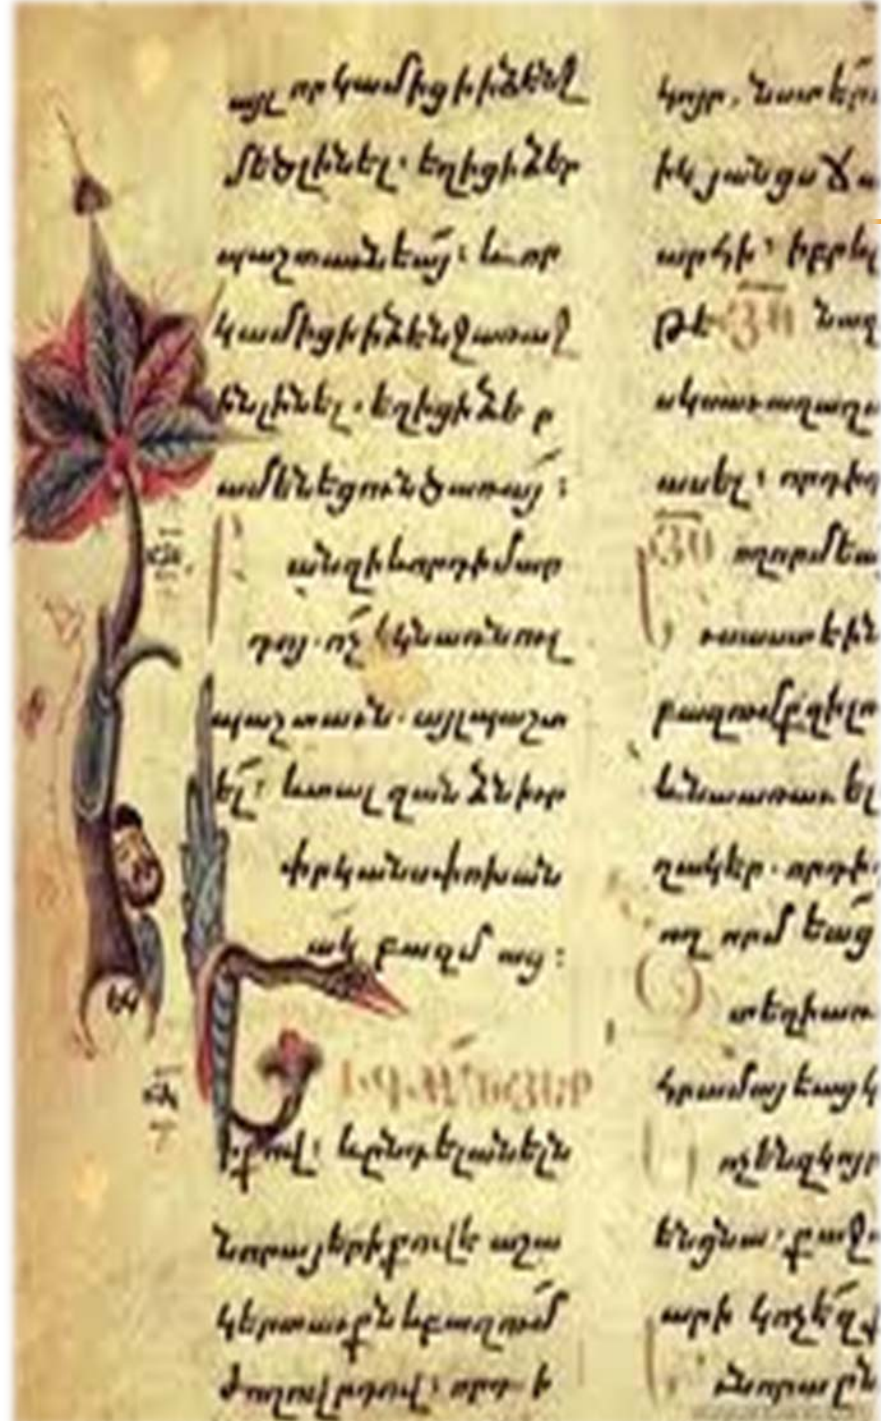 այլ որ կամիցի ի ձէնջ
մեծ լինել. եղիցի ձեր
պաշտաւնեայ։ և որ
կամիցի ի ձէնջ առաջ
ին լինել. եղիցի ձեր
ամենեցուն ծառայ։
անզի և որդի մար
դոյ. ոչ եկն առնուլ
պաշտաւն. այլ պաշտ
ել՝ և տալ զանձն իւր
փրկանս փոխան
ակ բազմաց։
իքով՝ և ընդ ելանելն
նորա յերիքովէ աշա
կերտաւքն և բազում
ժողովրդով. որդ ի
կոյր, նստէր
իկ յանցս ճա
արհի՝ իբրև լ
թէ ՅՍ նազ
սկսաւ աղաղ
ասել՝ որդի
ՅՍ ողորմեա
սաստէին
բազումք զի լռ
և նա առաւել
ղակէր. որդի
ող որմ եաց
տեղի առ
հրամայեաց կ
ոչեն զկոյր
են ցնա. քաջ
արի կոչէ զք
նորա ըն